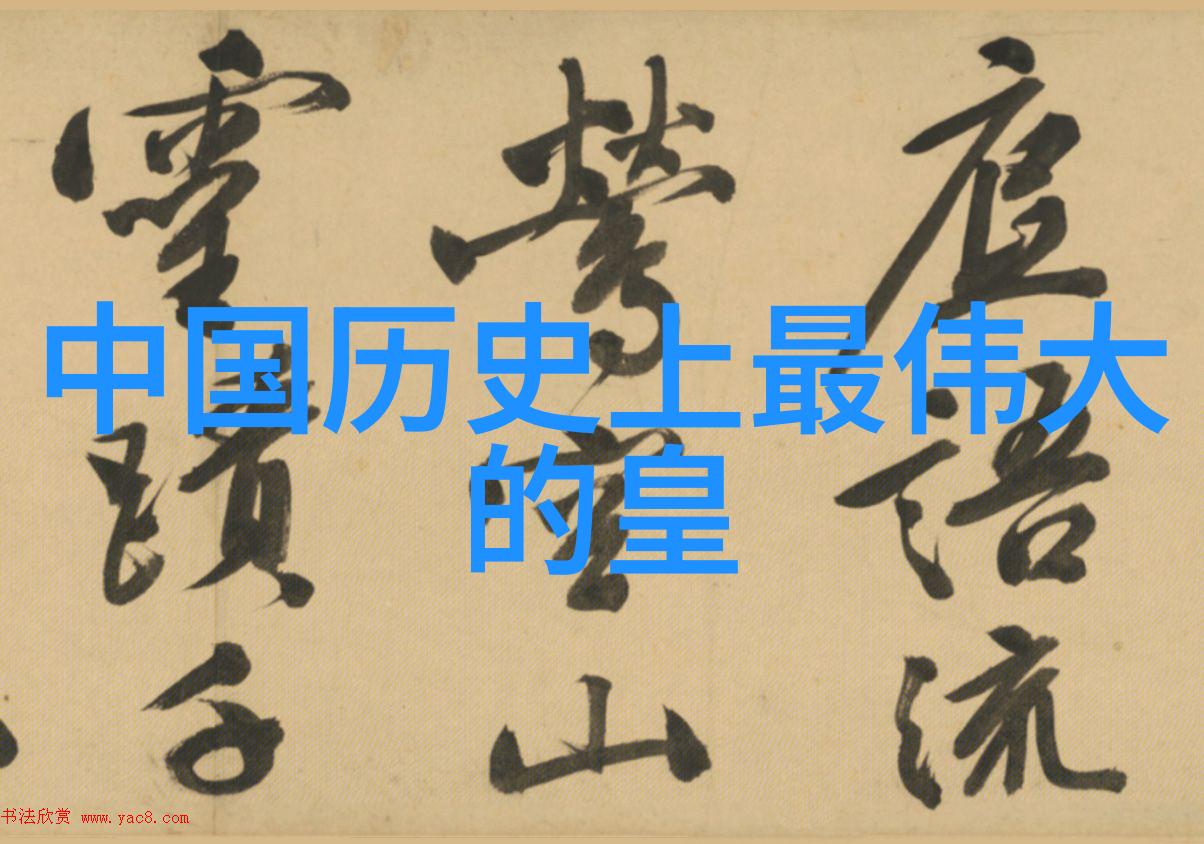 中国历史上最伟大
的皇
語流
鶯山
千
书法欣赏 www.yac8.com